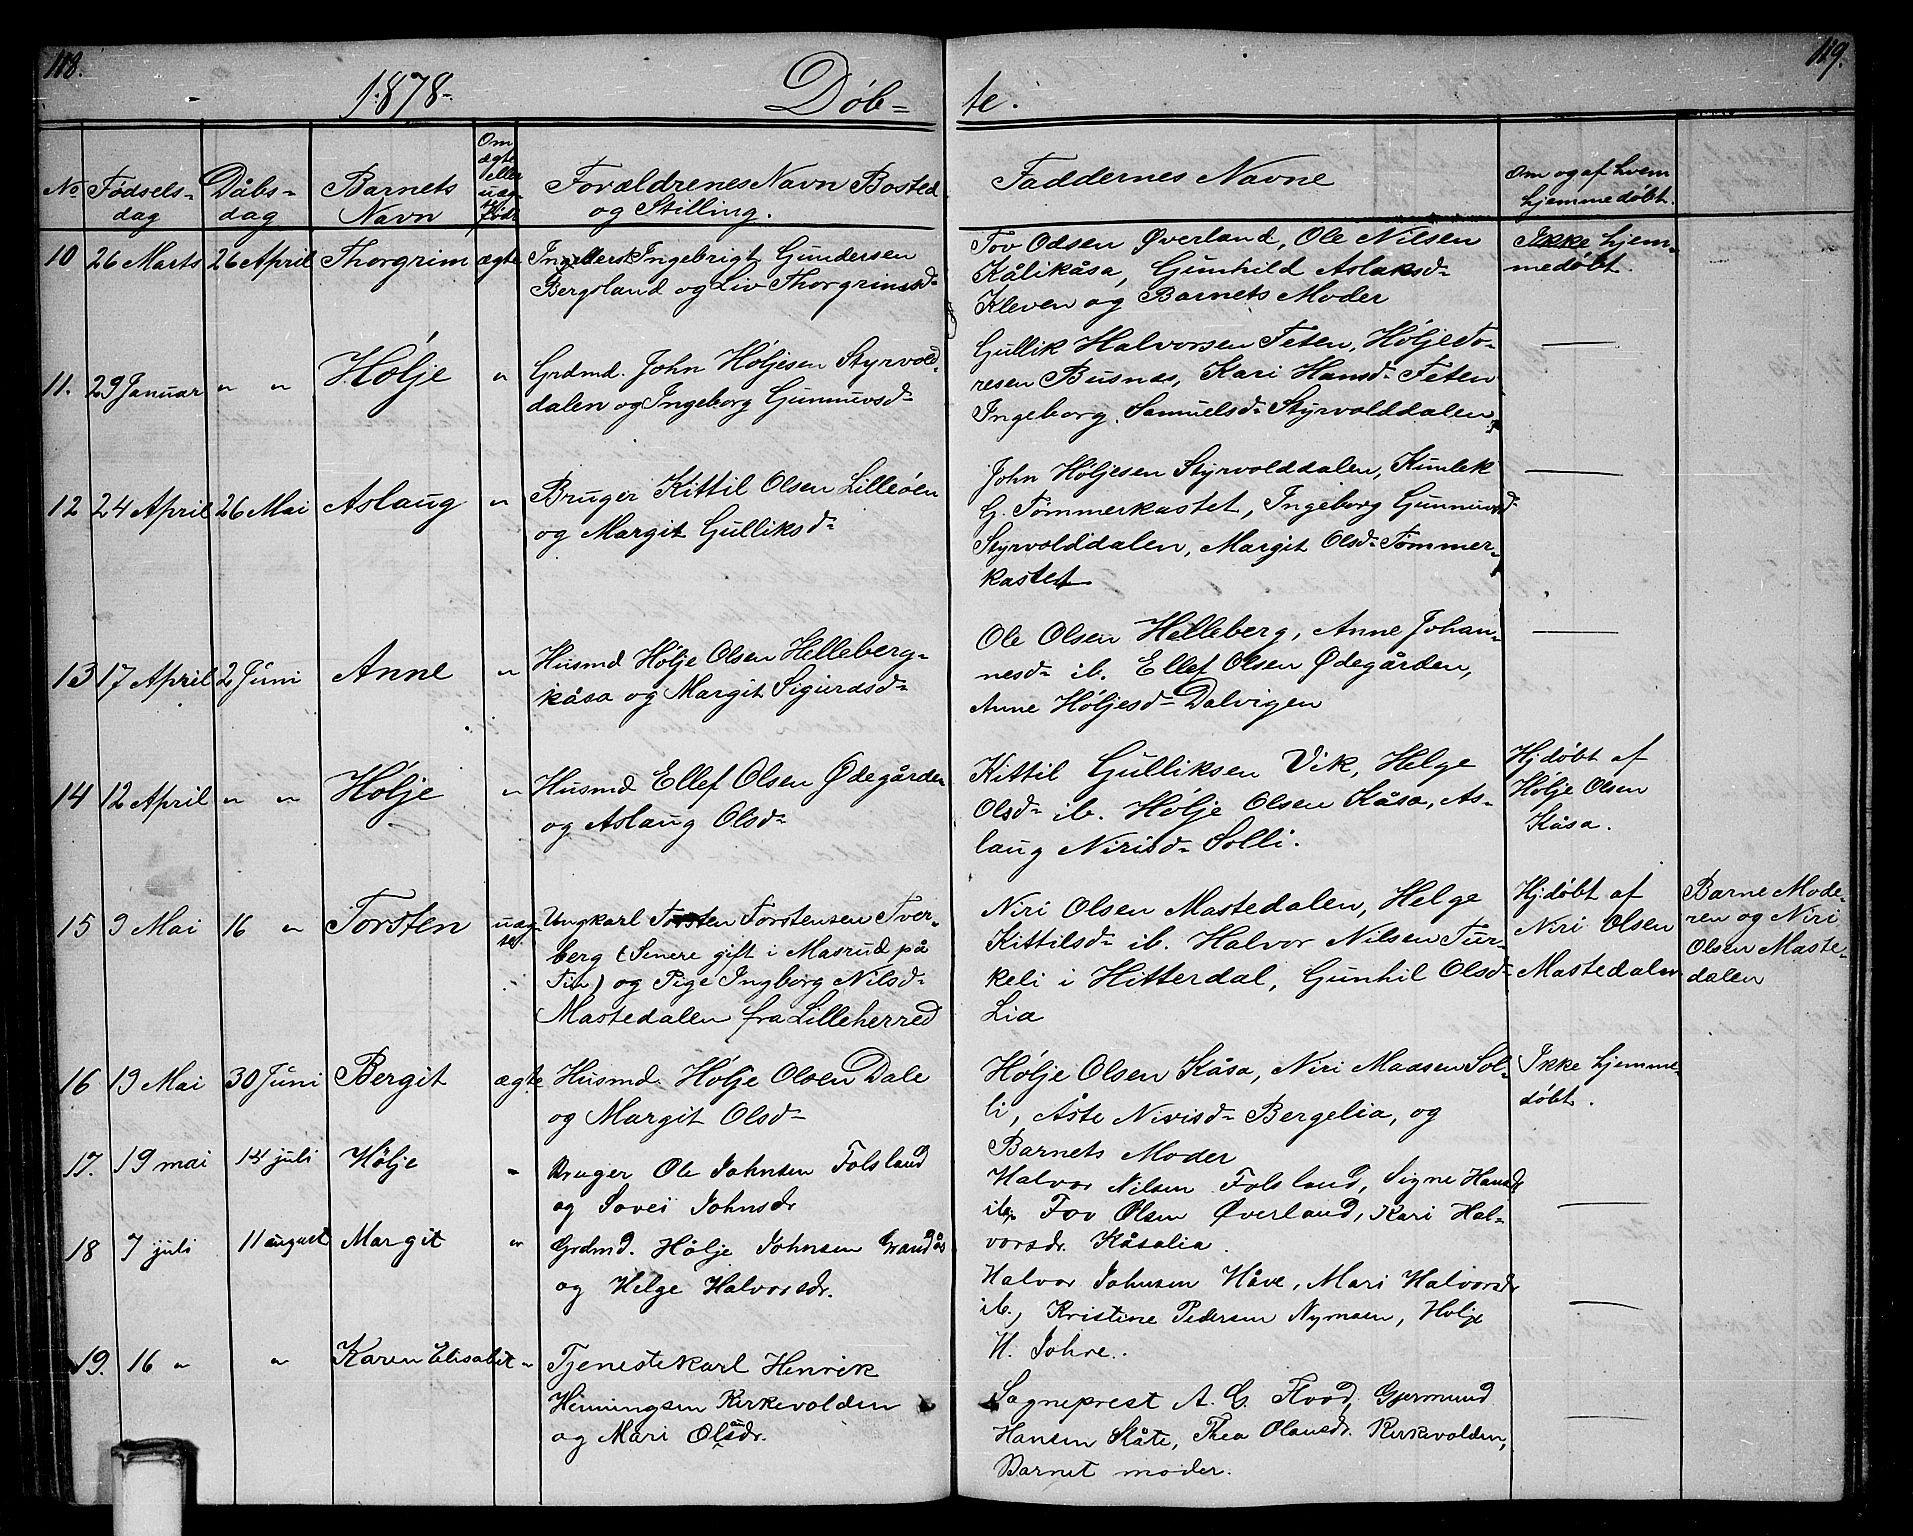 118.
119.
1878.
Døb=
te.
No
Fødsels=
dag
Dåbs=
dag
Barnets
Navn
Om
ægte
eller
uæg-
te
født
Forældrenes Navn Bosted
og Stilling.
Faddernes Navne
Om og af hvem
hjemmedøbt.
10 26 Marts 26 April Thorgrim ægte
Ingebrigt Gundersen
Bergsland og Liv Thorgrimsd-
Tov Odsen Øverland, Ole Nilsen
Kålikåsa, Gunhild Aslaksd-
Kleven og Barnets Moder
Ikke hjem-
medøbt.
11. 29 Januar " " Hølje "
Grdmd. John Høljesen Styrvold-
dalen og Ingeborg Gunnuvsd-
Gullik Halvorsen Teten, Høljedo-
resen Busnes, Kari Hansd- Teten
Ingeborg Samuelsd- Styrvolddalen,
—
12 24 April 26 Mai Aslaug "
Bruger Kittil Olsen Lilleøen
og Margit Gulliksd-
John Høljesen Styrvolddalen, Kunlek
G. Tømmerkastet, Ingeborg Gunnuvsd-
Styrvolddalen, Margit Olsd- Tømmer-
kastet
—
13 17 April 2 Juni Anne "
Husmd Hølje Olsen Helleberg-
kåsa og Margit Sigurdsd-
Ole Olsen Helleberg, Anne Johan-
nesd- ib. Ellef Olsen Ødegården,
Anne Høljesd- Dalvigen
—
14 12 April " " Hølje "
Husmd Ellef Olsen Ødegården
og Aslaug Olsd-
Kittil Gulliksen Vik, Helge
Olsd- ib. Hølje Olsen Kåsa, As-
laug Nirisd- Solli.
Hjdøbt af
Hølje Olsen
Kåsa.
15 9 Mai 16 " Torsten uæg-
te.
Ungkarl Torsten Torstensen Tver-
berg (Senere gift i Masrud på
Tin) og Pige Ingborg Nilsd-
Mastedalen fra Lilleherred
Niri Olsen Mastedalen, Helge
Kittilsd- ib. Halvor Nilsen Tur-
keli i Hitterdal, Gunhil Olsd-
Lia
Hjdøbt af
Niri Olsen
Mastedalen
Barne Mode-
ren og Niri
Olsen Maste-
dalen
16 19 Mai 30 Juni Bergit ægte
Husmd- Hølje Olsen Dale
og Margit Olsd-
Hølje Olsen Kåsa, Niri Madsen Sol-
li, Åste Nirisd- Bergelia, og
Barnets Moder
Ikke hjemme-
døbt.
17. 19 mai 14 juli Hölje "
Bruger Ole Johnsen Folsland
og Sovei Johnsdr
Halvor Nilsen Folsland, Signe Hansdr
ib, Tov Olsen Øverland, Kari Hal-
vorsdr. Kåsalia.
—
18 7 juli 11 august Margit "
Grdmd. Hölje Johnsen Grandås
og Helge Halvorsdr.
Halvor Johnsen Håve, Mari Halvorsdr
ib, Kristine Pedersen Nymoen, Hölje
H. Johre.
—
19. 16 " " Karen Elisabet "
Tjenestekarl Henrik
Henningsen Kirkevolden
og Mari Olsdr.
Sogneprest A. G. Flood, Gjermund
Hansen Skåte, Thea Olansdr. Kirkevolden,
Barnet moder.
—